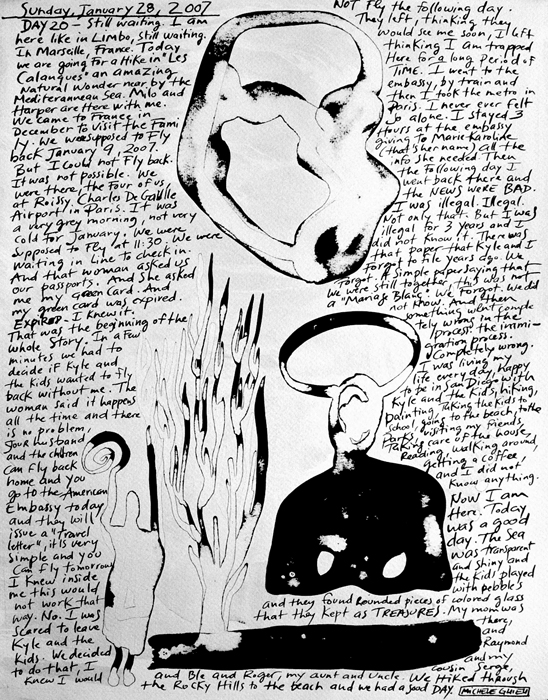 Sunday, January 28, 2007
DAY 20 - Still waiting. I am
here like in Limbo, still waiting.
In Marseille, France. Today
we are going for a Hike in "Les
Calanques" an amazing
Natural Wonder near by the
Mediterannean Sea. Milo and
Harper are Here with me.
We came to France in
December to visit the Fami
ly. We were supposed to Fly
back January 9, 2007.
But I could Not Fly back.
It was not possible. We
were there, the Four of us
at Roissy, Charles De Gaulle
Airport in Paris. It was
a very grey morning, not very
cold for January. We were
supposed to Fly at 11:30. We were
waiting in Line to check in
And that woman asked us
our passports. And she asked
me my green card. And
my green card was expired.
EXPIRED - I knew it.
That was the beginning of the
whole story. In a few
minutes we had to
decide if Kyle and
the kids wanted to fly
back without me. The
woman said it happens
all the time and there
is no problem,
your husband
and the children
can fly back
home and you
go to the American
Embassy today
and they will
issue a "Travel
letter", it is very
simple and you
can fly tomorrow
I knew inside
me this would
not work that
way. No. I was
scared to leave
Kyle and the
kids. We decided
to do that, I
knew I would
NOT Fly the following day.
They left, thinking they
would see me soon, I left
thinking I am trapped
Here for a long Period of
TIME. I went to the
embassy, by train and
then I took the metro in
Paris. I never ever felt
so alone. I stayed 3
Hours at the embassy
giving To Marie-Karoline
(that's her name) all the
info she needed. Then
the Following day I
went back there and
the NEWS WERE BAD.
I was illegal. Illegal.
Not only that. But I was
illegal for 3 years and I
did not know it. There was
that paper that Kyle and I
forgot to file years ago. We
forgot. A simple paper saying that
we were still together, this was not
"Mariage Blanc". We forgot. We did
not know. And then
something went comple
tely wrong in the
process the immi-
gration process.
Completely wrong.
I was living my
life every day, happy
to be in San Diego with
Kyle and the Kids, hiking,
Painting, taking the kids to
School, going to the beach, to the
Parks, visiting my friends,
Taking care of the house,
Reading, walking around,
getting a coffee,
and I did not
know anything.
Now I am
Here. Today
was a good
day. The sea
was transparent
and shiny and
the kids played
with pebbles
and they found Rounded pieces of colored glass
that they kept as TREASURES. My mom was
there,
and
Raymond
and my
cousin Serge,
and Ble and Roger, my aunt and uncle. We Hiked through
the Rocky Hills to the beach and we had a good DAY MICHELE GUIEU